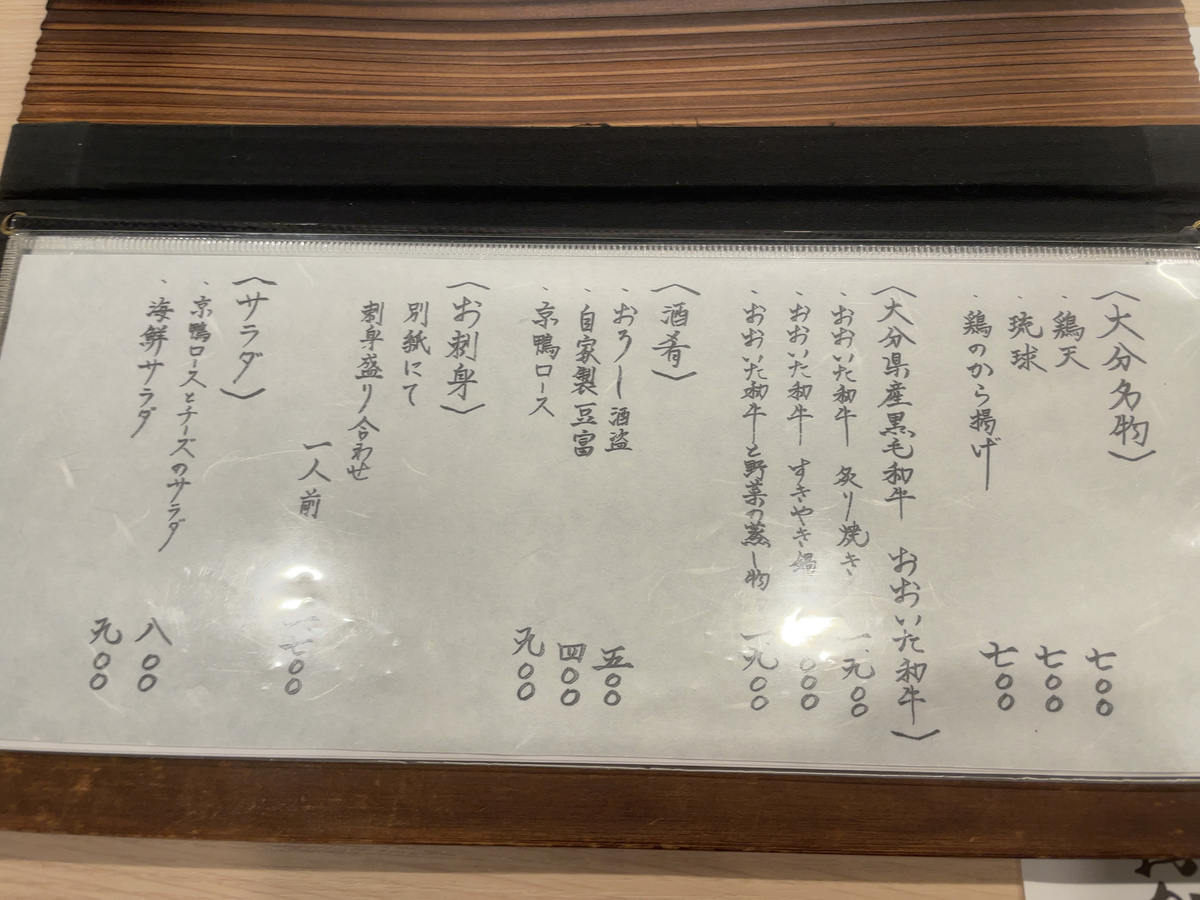 〈大分名物〉
・鶏天 七〇〇
・琉球 七〇〇
・鶏のから揚げ 七〇〇
〈大分県産黒毛和牛 おおいた和牛〉
・おおいた和牛 炙り焼き 一、九〇〇
・おおいた和牛 すきやき鍋
・おおいた和牛と野菜の蒸し物 一、九〇〇
〈酒肴〉
・おろし酒盗 五〇〇
・自家製豆富 四〇〇
・京鴨ロース 九〇〇
〈お刺身〉
別紙にて
刺身盛り合わせ
一人前
〈サラダ〉
・京鴨ロースとチーズのサラダ 八〇〇
・海鮮サラダ 九〇〇